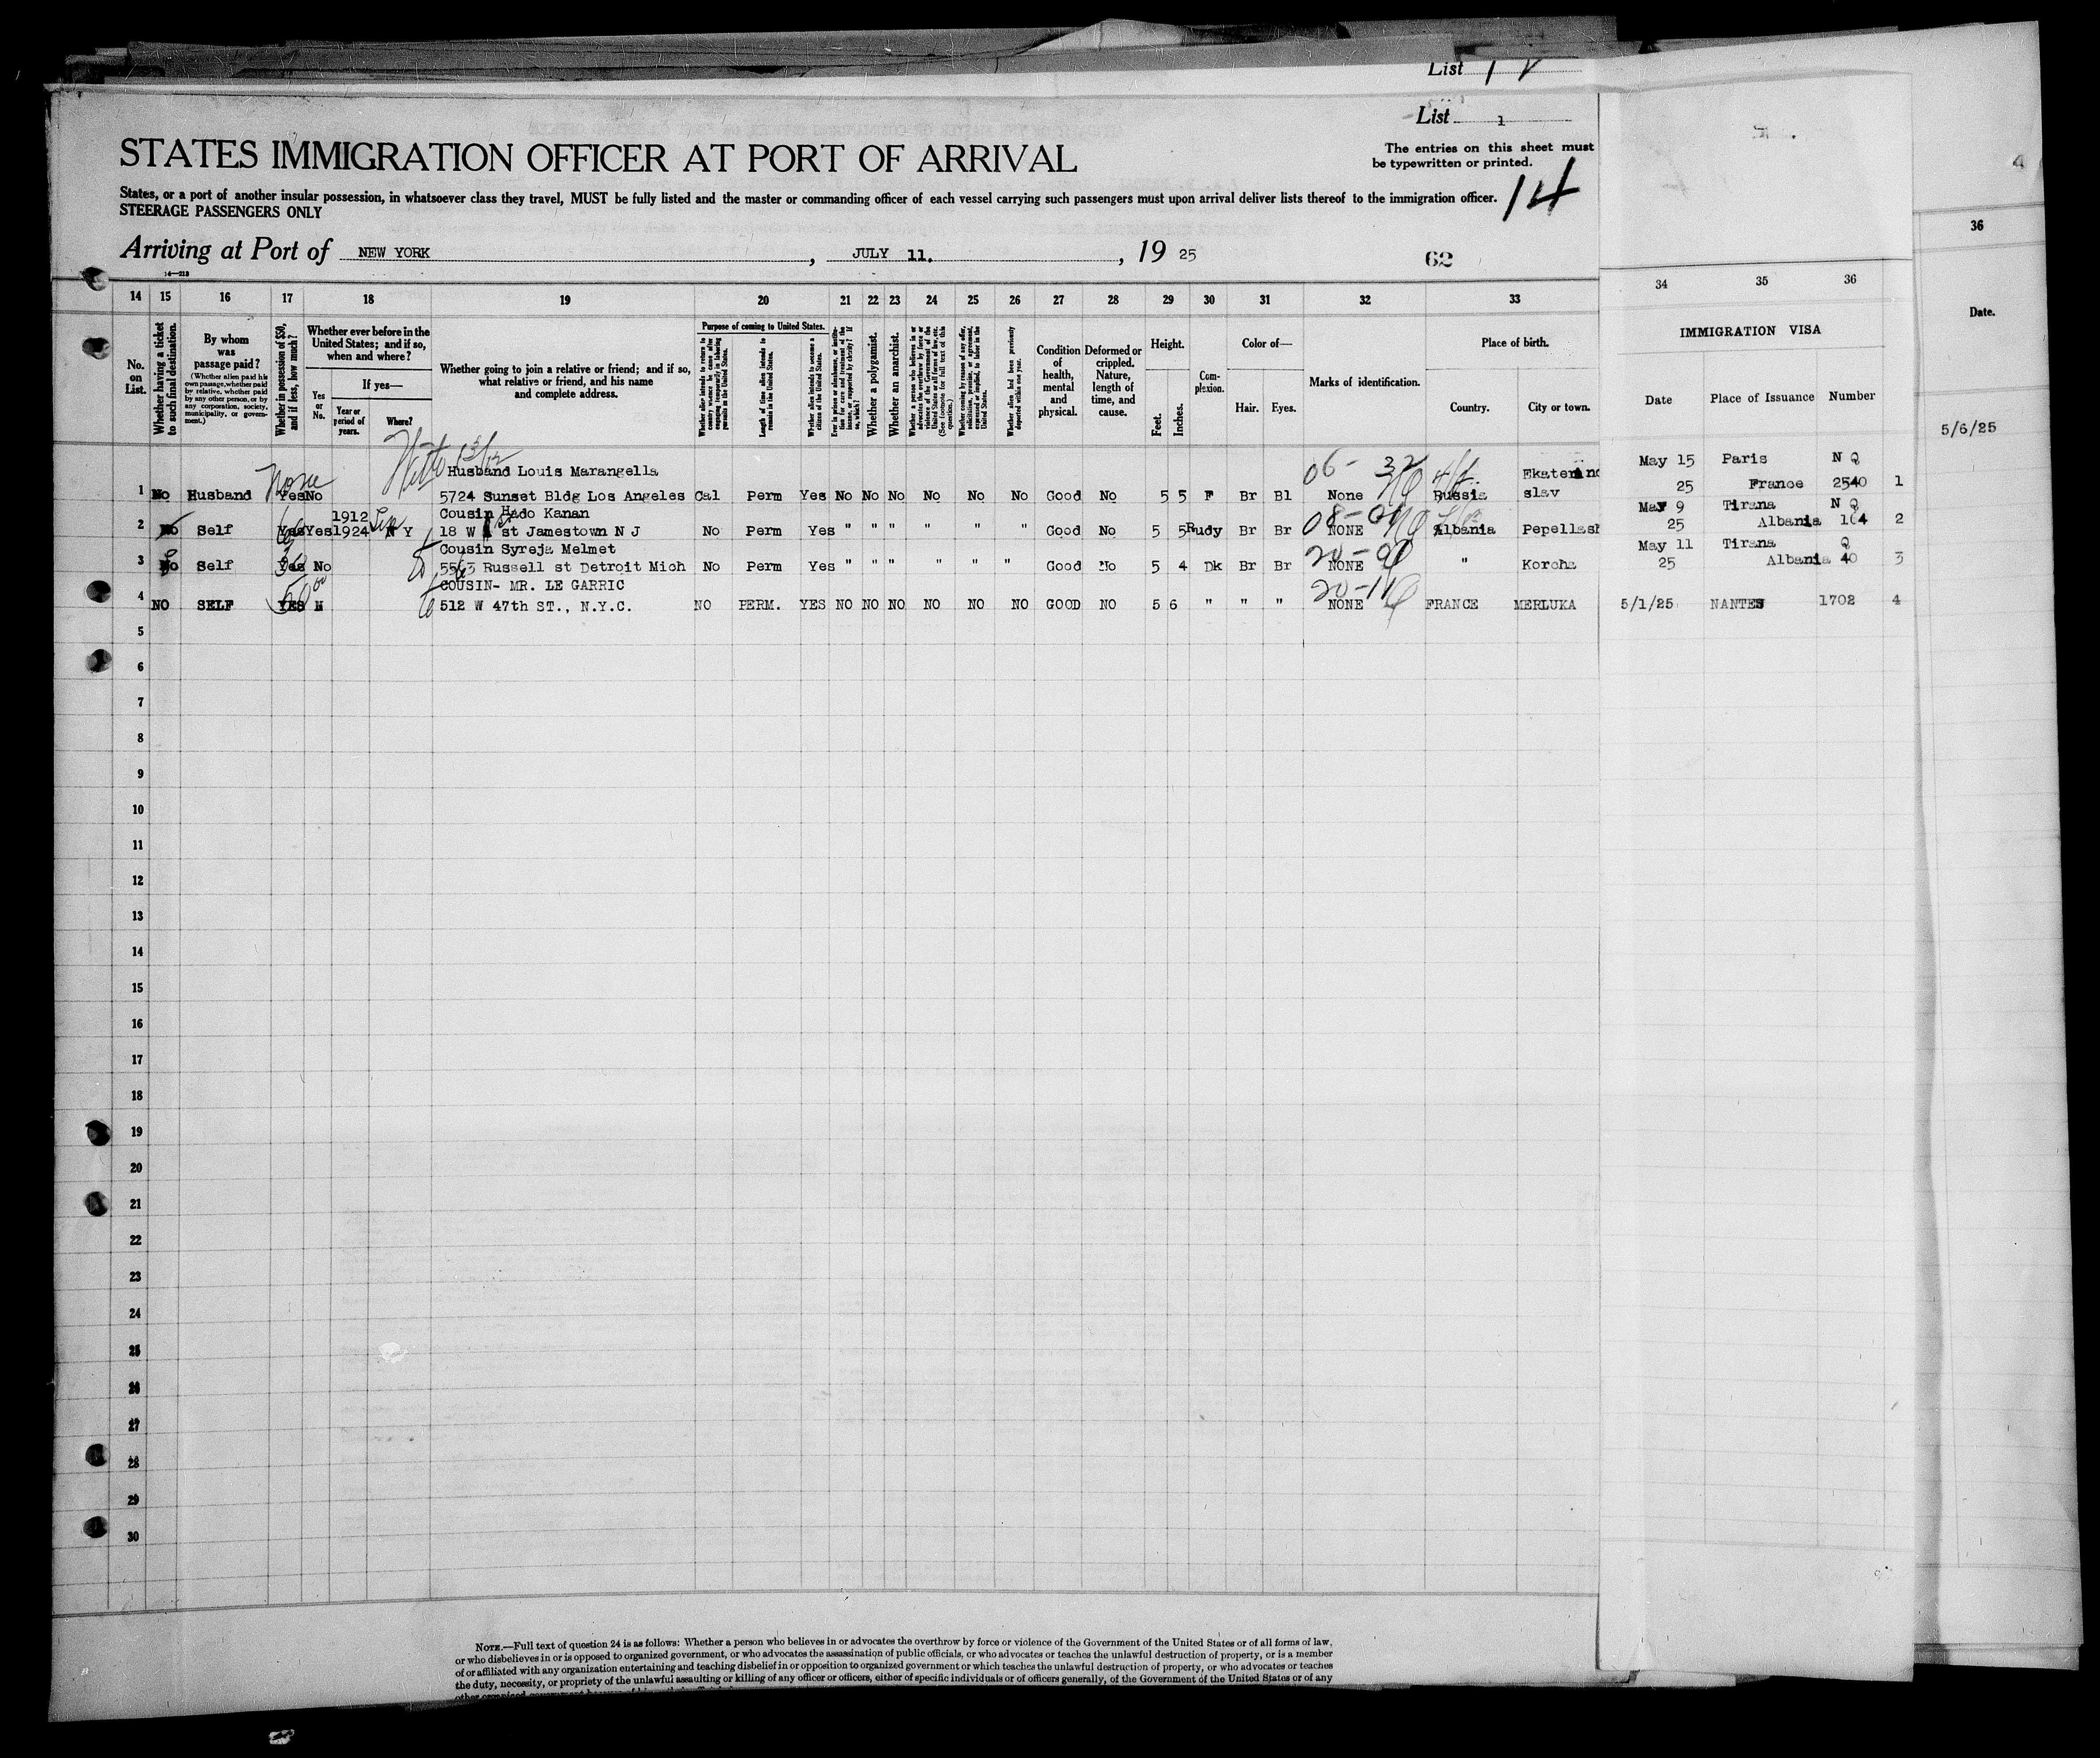 List 1
List 1
STATES IMMIGRATION OFFICER AT PORT OF ARRIVAL
The entries on this sheet must
be typewritten or printed.
14
States, or a port of another insular possession, in whatsoever class they travel, MUST be fully listed and the master or commanding officer of each vessel carrying such passengers must upon arrival deliver lists thereof to the immigration officer.
STEERAGE PASSENGERS ONLY
Arriving at Port of NEW YORK, JULY 11., 19 25
62
14—218
14 15 16 17 18 19 20 21 22 23 24 25 26 27 28 29 30 31 32 33 34 35 36
36
No. on List.
Whether having a ticket to such final destination.
By whom was passage paid?
(Whether alien paid his own passage, whether paid by relative, whether paid by any other person, or by any corporation, society, municipality, or government.)
Whether in possession of $50, and if less, how much?
Whether ever before in the United States; and if so, when and where?
Yes or No.
If yes—
Year or period of years.
Where?
Whether going to join a relative or friend; and if so, what relative or friend, and his name and complete address.
Purpose of coming to United States.
Length of time alien intends to remain in the United States.
Whether alien intends to become a citizen of the United States.
Whether a polygamist.
Whether an anarchist.
(See footnote for full text of this question.)
Condition of health, mental and physical.
Deformed or crippled. Nature, length of time, and cause.
Height.
Feet.
Inches.
Complexion.
Color of—
Hair.
Eyes.
Marks of identification.
Place of birth.
Country.
City or town.
IMMIGRATION VISA
Date
Place of Issuance
Number
Date.
5/6/25
Husband Louis Marangella Ekaterino May 15 Paris N Q
1 No Husband None Yes No 5724 Sunset Bldg Los Angeles Cal Perm Yes No No No No No No Good No 5 5 F Br Bl None Russia slav 25 France 2540 1
1912 Cousin Hado Kanan May 9 Tirana N Q
2 No Self Yes Yes 1924 N Y 18 W 1 st Jamestown N J No Perm Yes " " " " " " Good No 5 5 Rudy Br Br NONE Albania Pepellash 25 Albania 164 2
Cousin Syreja Melmet May 11 Tirana Q
3 No Self Yes No 5563 Russell st Detroit Mich No Perm Yes " " " " " " Good No 5 4 Dk Br Br NONE " Korcha 25 Albania 40 3
COUSIN- MR. LE GARRIC
4 NO SELF YES N 512 W 47th ST., N.Y.C. NO PERM. YES NO NO NO NO NO NO GOOD NO 5 6 " " " NONE FRANCE MERLUKA 5/1/25 NANTES 1702 4
5
6
7
8
9
10
11
12
13
14
15
16
17
18
19
20
21
22
23
24
25
26
27
28
29
30
NOTE.—Full text of question 24 is as follows: Whether a person who believes in or advocates the overthrow by force or violence of the Government of the United States or of all forms of law,
or who disbelieves in or is opposed to organized government, or who advocates the assassination of public officials, or who advocates or teaches the unlawful destruction of property, or is a member
of or affiliated with any organization entertaining and teaching disbelief in or opposition to organized government or which teaches the unlawful destruction of property, or who advocates or teaches
the duty, necessity, or propriety of the unlawful assaulting or killing of any officer or officers, either of specific individuals or of officers generally, of the Government of the United States or of any